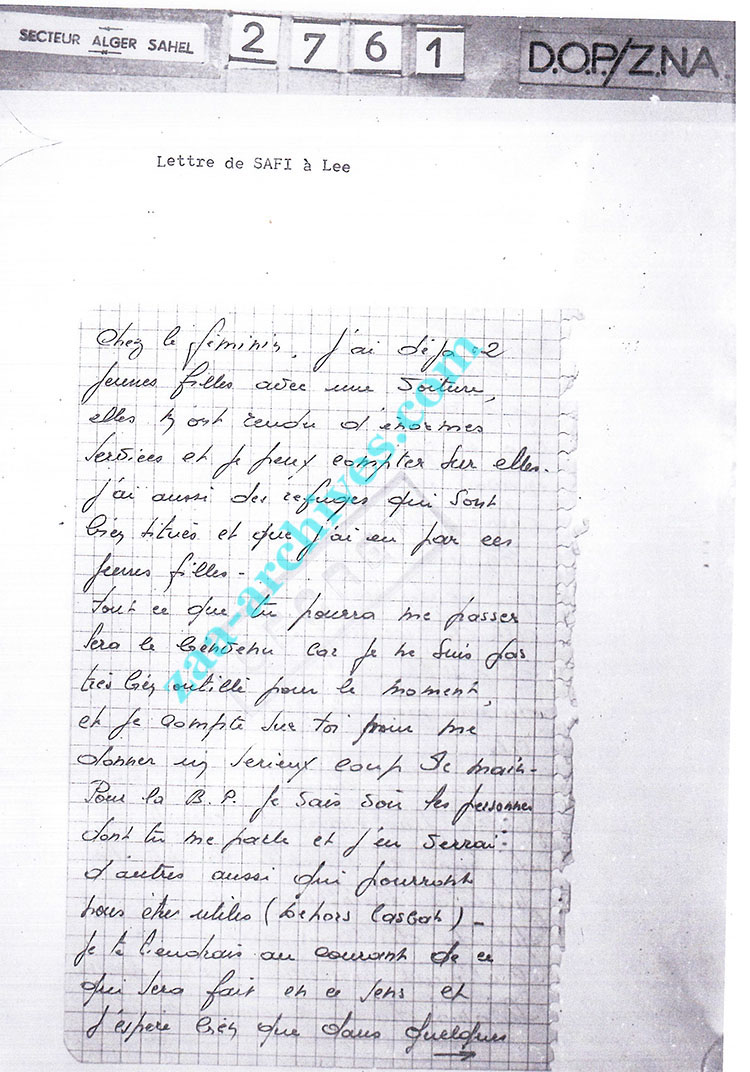 SECTEUR ALGER SAHEL
2761
D.O.P./Z.N.A.
Lettre de SAFI à Lee
Chez le féminin, J'ai déja 2
jeunes filles avec une Voiture,
elles m'ont rendu d'énormes
services et je peux compter sur elles.
J'ai aussi des refuges qui sont
bien titués et que j'ai eu par ces
jeunes filles -
tout ce que tu pourra me passer
sera le bienvenu car je ne suis pas
très bien outillé pour le moment,
et je compte sur toi pour me
donner un serieux coup de main -
Pour la B.P. je vais voir les personnes
dont tu me parle et j'en verrai
d'autres aussi qui pourront
nous êtres utiles (dehors Casbah) -
je te tiendrais au courant de ce
qui sera fait en ce sens et
j'espère bien que dans quelques
zaa-archives.com